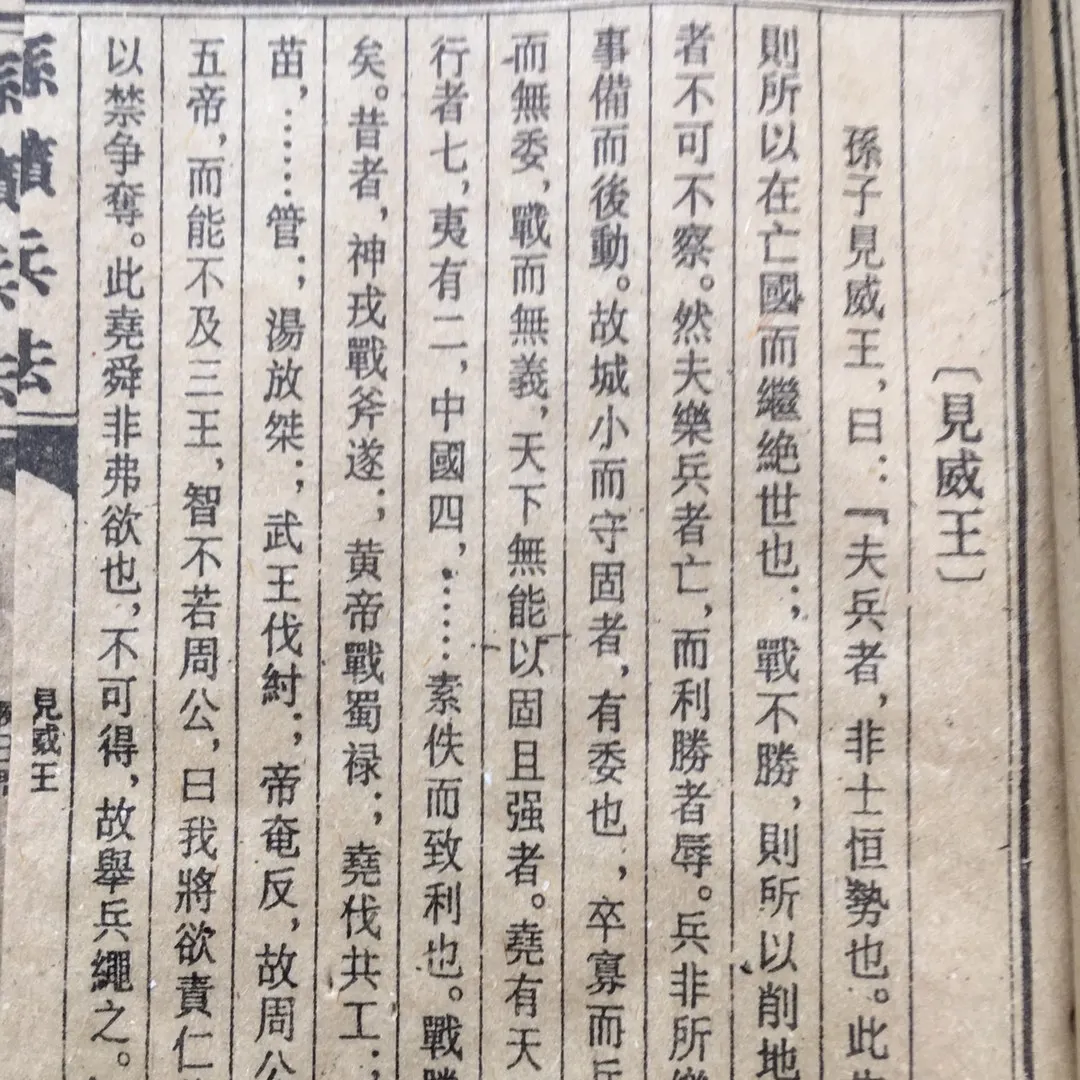 〔見威王〕
孫子見威王，曰：『夫兵者，非士恒勢也。此
則所以在亡國而繼絶世也；戰不勝，則所以削地
者不可不察。然夫樂兵者亡，而利勝者辱。兵非所
事備而後動。故城小而守固者，有委也，卒寡而
而無委，戰而無義，天下無能以固且强者。堯有天
行者七，夷有二，中國四，……素佚而致利也。戰
矣。昔者，神戎戰斧遂；黄帝戰蜀禄；堯伐共工；
苗，……管；湯放桀；武王伐紂；帝奄反，故周公
五帝，而能不及三王，智不若周公，曰我將欲責仁
以禁争奪。此堯舜非弗欲也，不可得，故舉兵繩之。
孫臏兵法
見威王